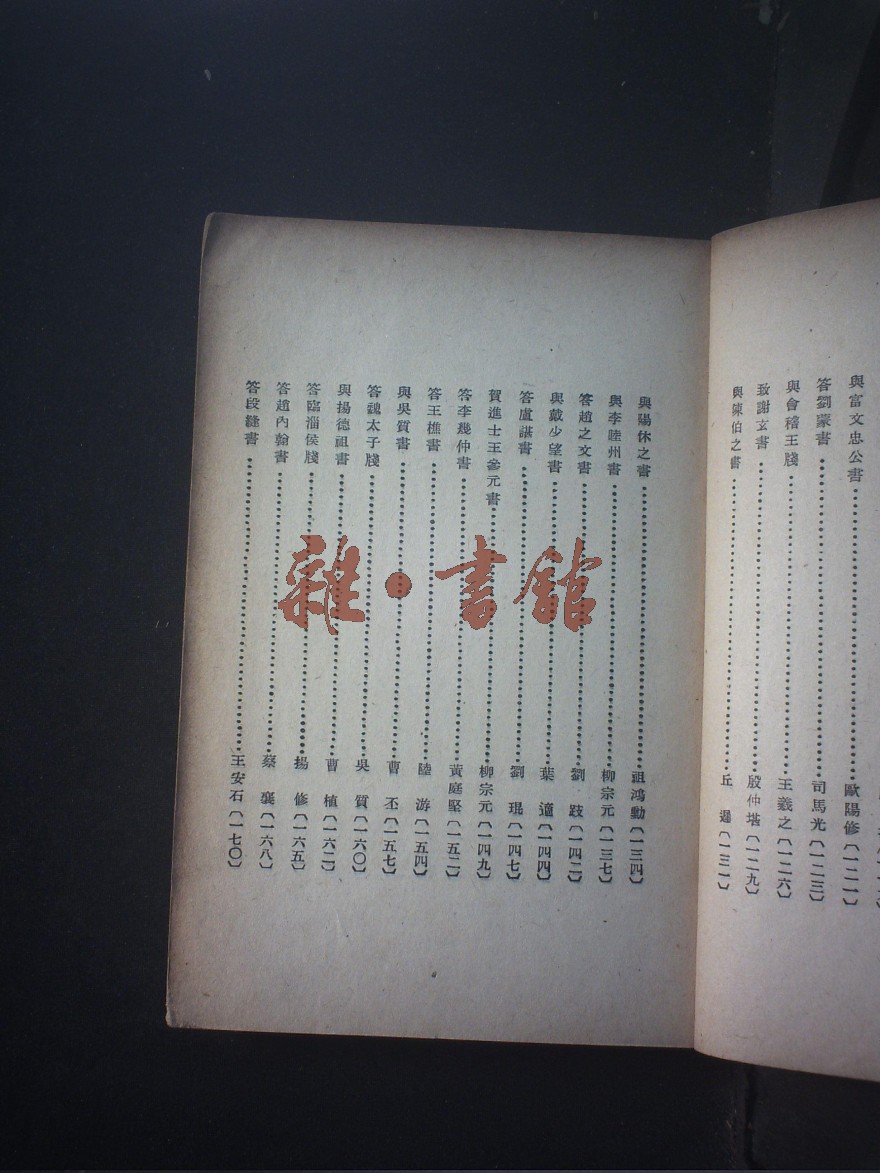 與富文忠公書…歐陽修〔一二一〕
答劉蒙書…司馬光〔一二三〕
與會稽王牋…王羲之〔一二六〕
致謝玄書…殷仲堪〔一二九〕
與陳伯之書…丘遲〔一三一〕
與陽休之書…祖鴻勳〔一三四〕
與李睦州書…柳宗元〔一三七〕
答趙之文書…劉跂〔一四二〕
與戴少望書…葉適〔一四四〕
答盧諶書…劉琨〔一四七〕
賀進士王參元書…柳宗元〔一四九〕
答李幾仲書…黃庭堅〔一五二〕
答王樵書…陸游〔一五四〕
與吳質書…曹丕〔一五七〕
答魏太子牋…吳質〔一六〇〕
與揚德祖書…曹植〔一六二〕
答臨淄侯牋…揚修〔一六五〕
答趙內翰書…蔡襄〔一六八〕
答段縫書…王安石〔一七〇〕
雜·書館